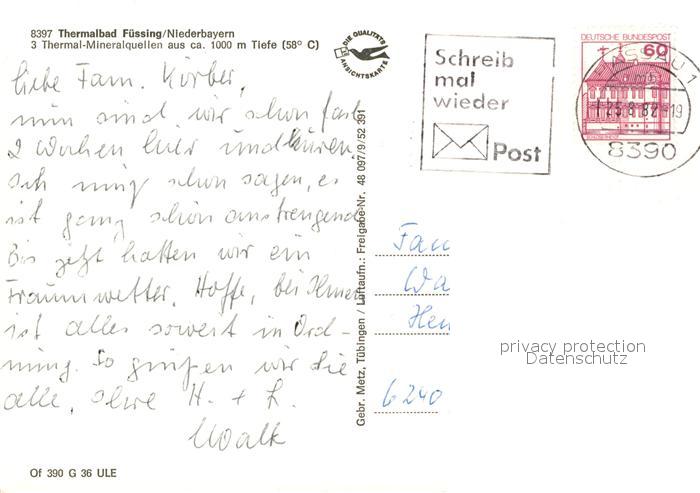 8397 Thermalbad Füssing/Niederbayern
3 Thermal-Mineralquellen aus ca. 1000 m Tiefe (58° C)
DIE QUALITÄTS
ANSICHTSKARTE
Schreib
mal
wieder
Post
DEUTSCHE BUNDESPOST
60
PASSAU 1
8390
liebe Fam. Körber,
nun sind wir schon fast
2 Wochen hier und kuren.
Ich muß schon sagen, es
ist ganz schön anstrengend.
Bis jetzt hatten wir ein
Traumwetter. Hoffe, bei Ihnen
ist alles soweit in Ord-
nung. So grüßen wir Sie
alle, Ihre H. + L.
Gebr. Metz, Tübingen / Luftaufn.: Freigabe-Nr. 48 097/9/52 391
Fam
Wa
Hen
6240
privacy protection
Datenschutz
Of 390 G 36 ULE